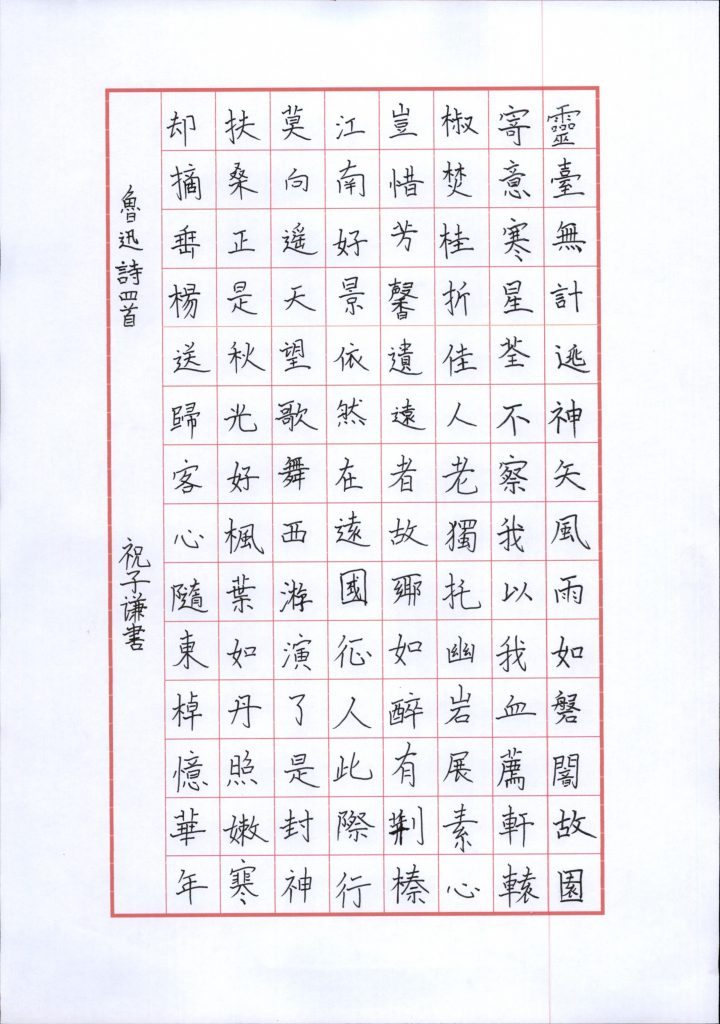 靈臺無計逃神矢風雨如磐闇故園
寄意寒星荃不察我以我血薦軒轅
椒焚桂折佳人老獨托幽岩展素心
豈惜芳馨遺遠者故鄉如醉有荆榛
江南好景依然在遠國征人此際行
莫向遥天望歌舞西游演了是封神
扶桑正是秋光好楓葉如丹照嫩寒
却摘垂楊送歸客心隨東棹憶華年
魯迅詩四首
祝子谦書